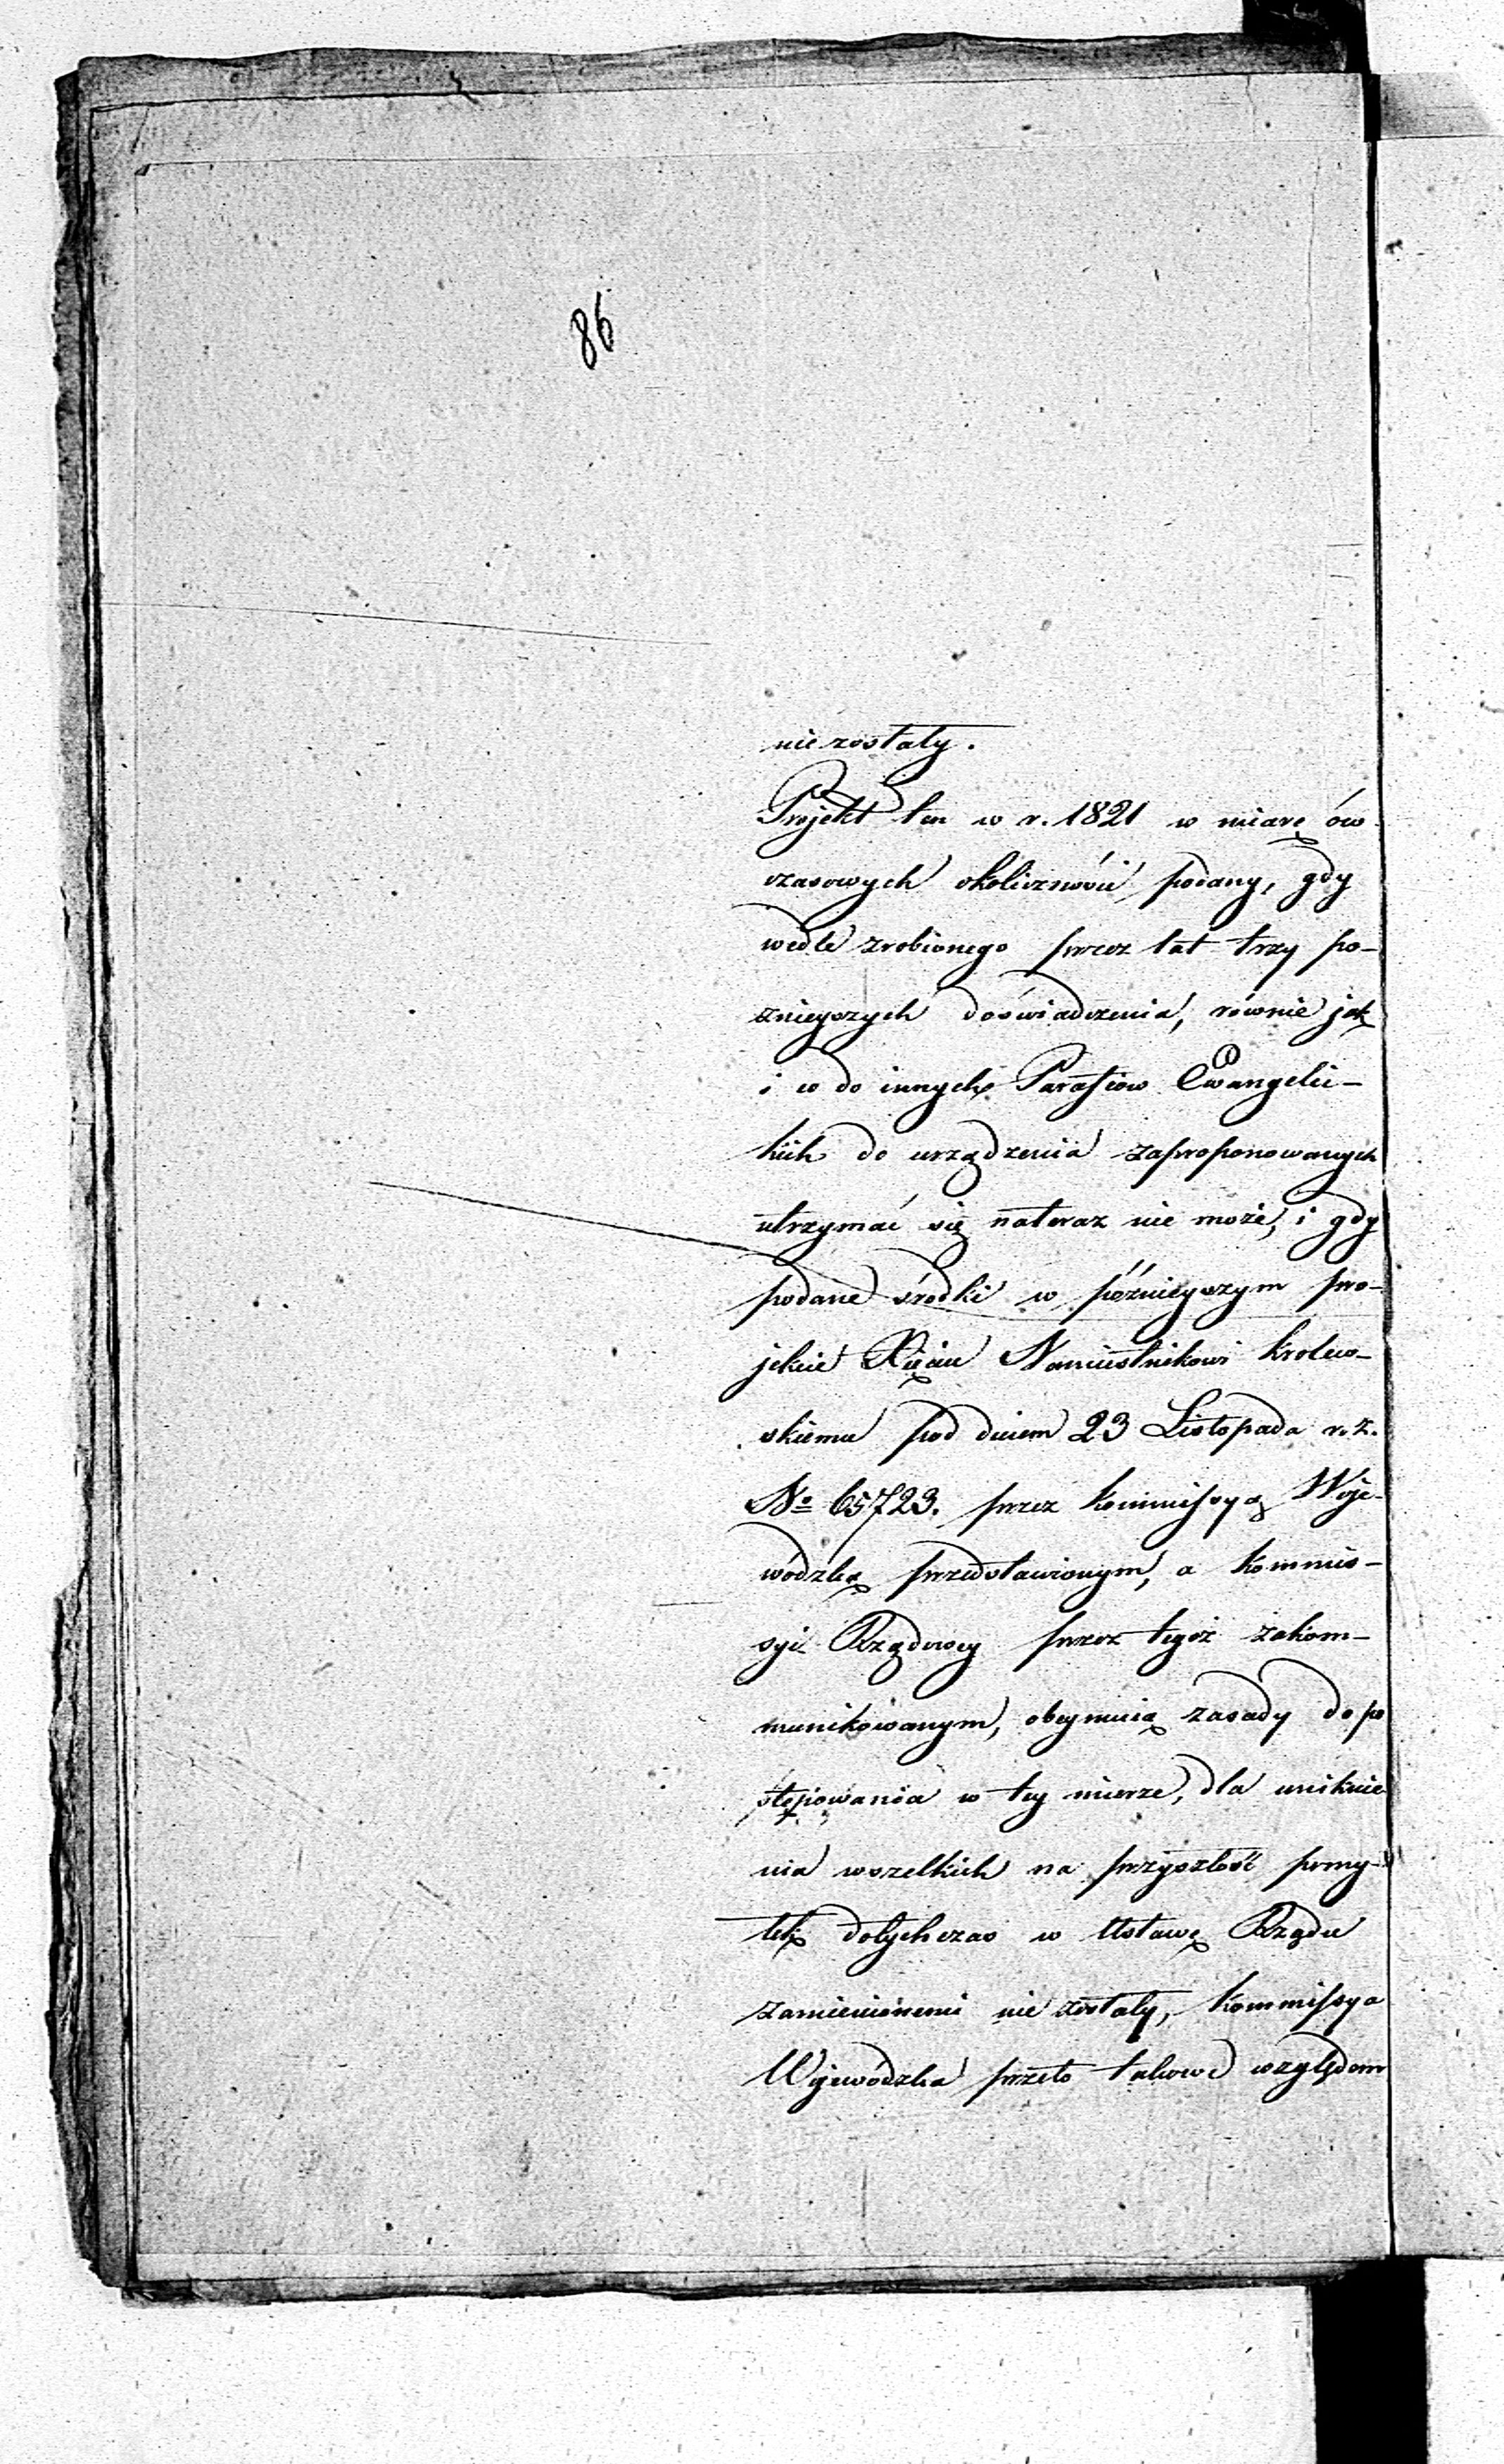 86
nie zostały.
Projekt ten w r. 1821 w miarę ów
czasowych okoliczności podany, gdy
wedle zrobionego przez lat trzy po-
znieyszych doświadczenia, równie jak
i co do innych Parafiow Ewangelic-
kich do urządzenia zaproponowanych
utrzymać się nateraz nie może, i gdy
podane środki w późnieyszym pro-
jekcie Xięciu Namiestnikowi Krolew-
skiemu pod dniem 23 Listopada r. z.
No 65723. przez Kommissyą Woje-
wódzką przedstawionym, a Kommis-
syi Rządowey przez tegoż zakom-
munikowanym, obeymuią zasady do po
stępowania w tey mierze, dla uniknie
nia wszelkich na przyszłość pomy-
łek dotychczas w Ustawę Rządu
zamienionemi nie zostały, Kommissya
Wojewódzka przeto takowe względem